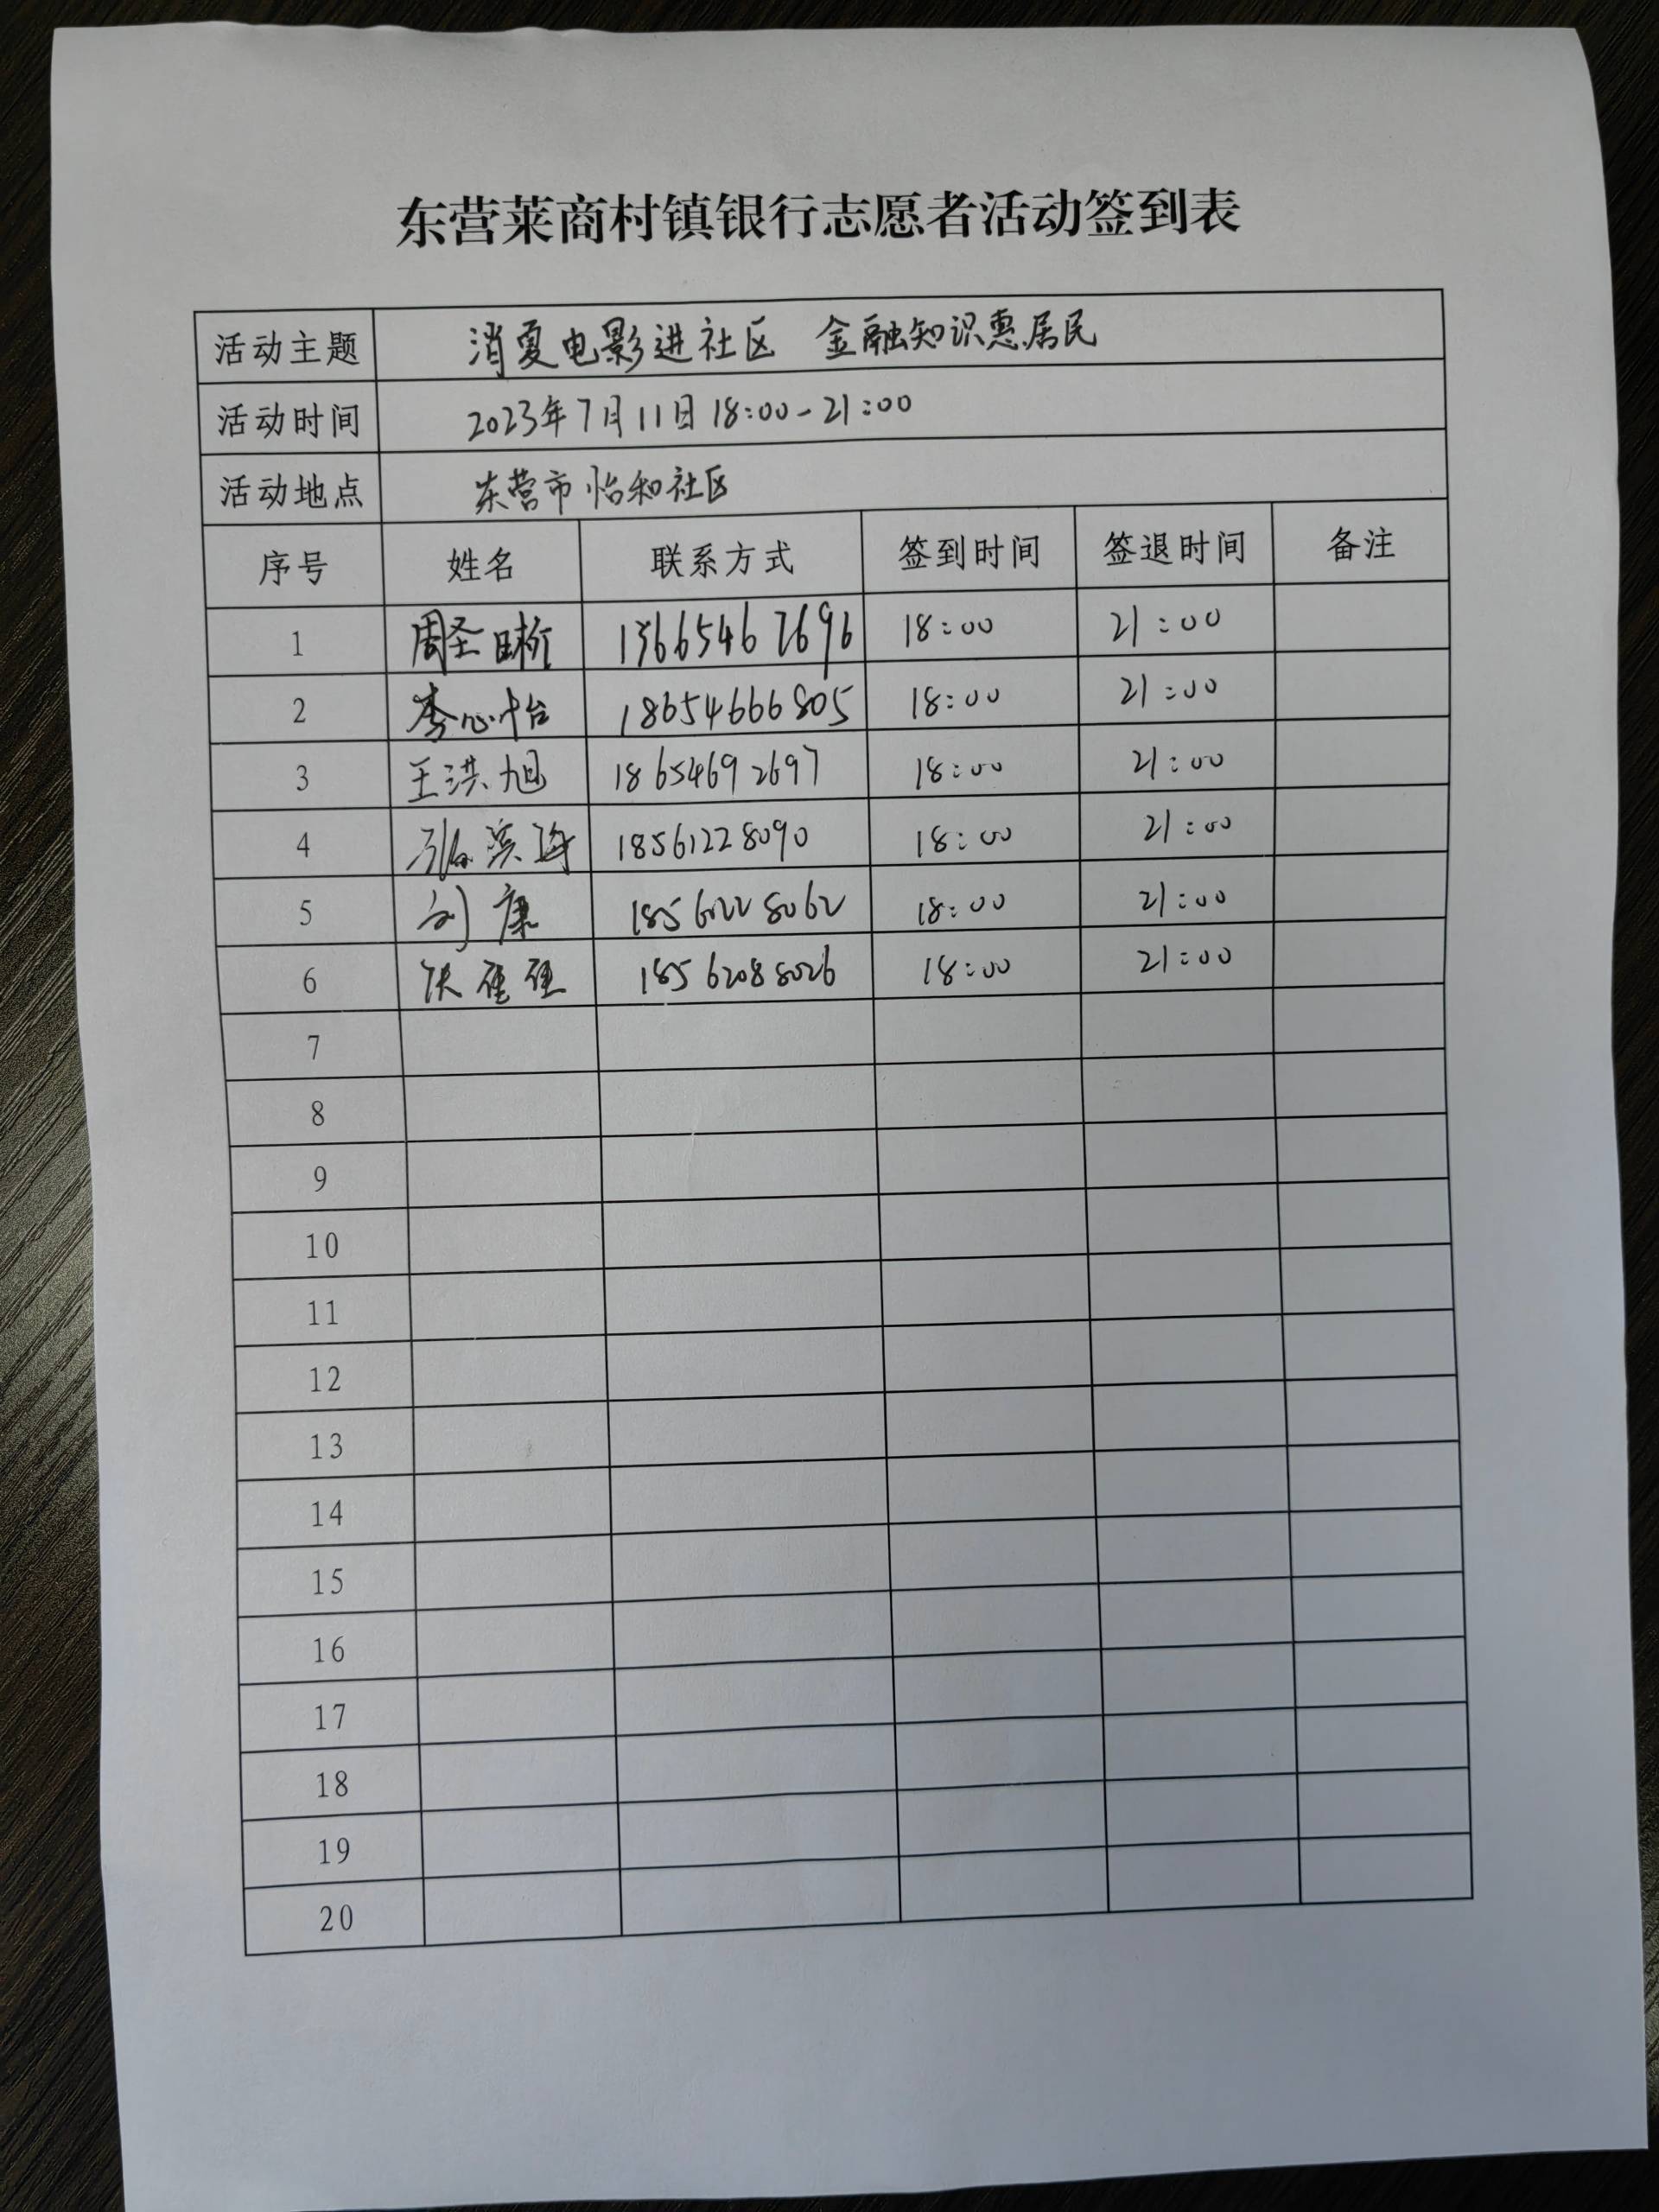 东营莱商村镇银行志愿者活动签到表
活动主题 消夏电影进社区 金融知识惠居民
活动时间 2023年7月11日18:00-21:00
活动地点 东营市怡和社区
序号 姓名 联系方式 签到时间 签退时间 备注
1 周圣晰 13665467696 18:00 21:00
2 李心怡 18654666805 18:00 21:00
3 王洪旭 18654692697 18:00 21:00
4 滨海 18561228090 18:00 21:00
5 刘康 18561228062 18:00 21:00
6 18562088026 18:00 21:00
7
8
9
10
11
12
13
14
15
16
17
18
19
20